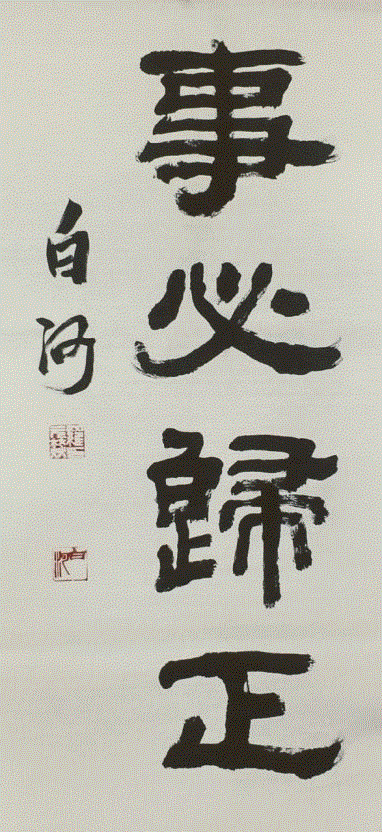 事必歸正
白河